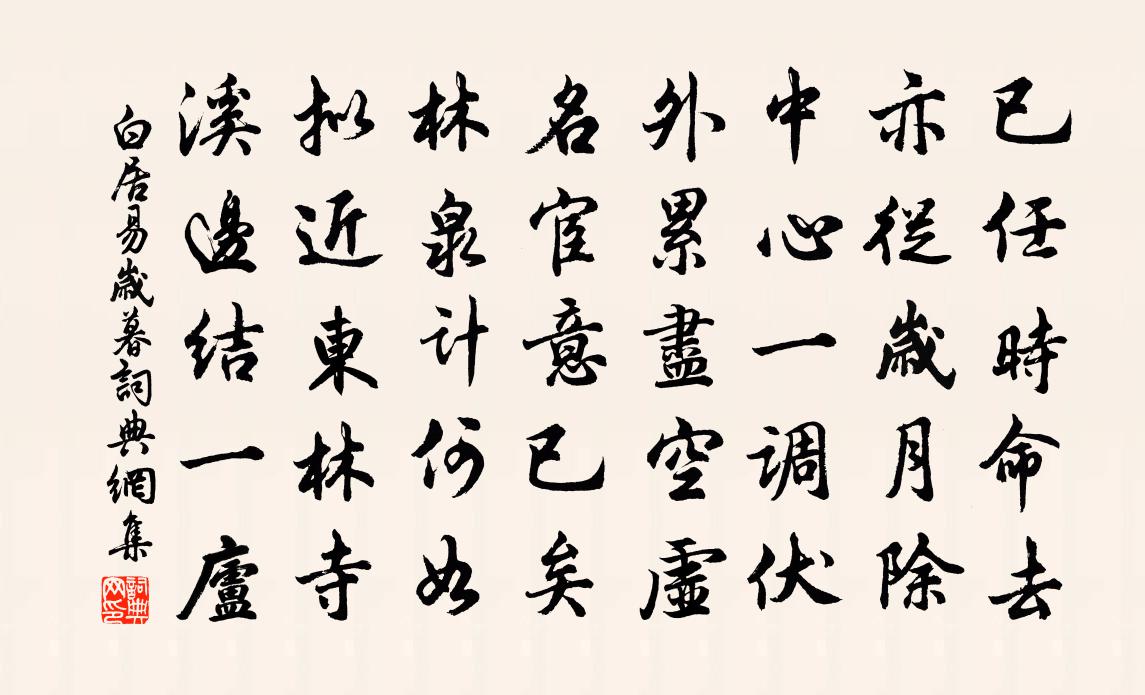 已任時命去
亦從歲月除
中心一調伏
外累盡空虛
名宦意已矣
林泉計何如
拟近東林寺
溪邊結一廬
白居易歲暮詞典網集
詞典
网印